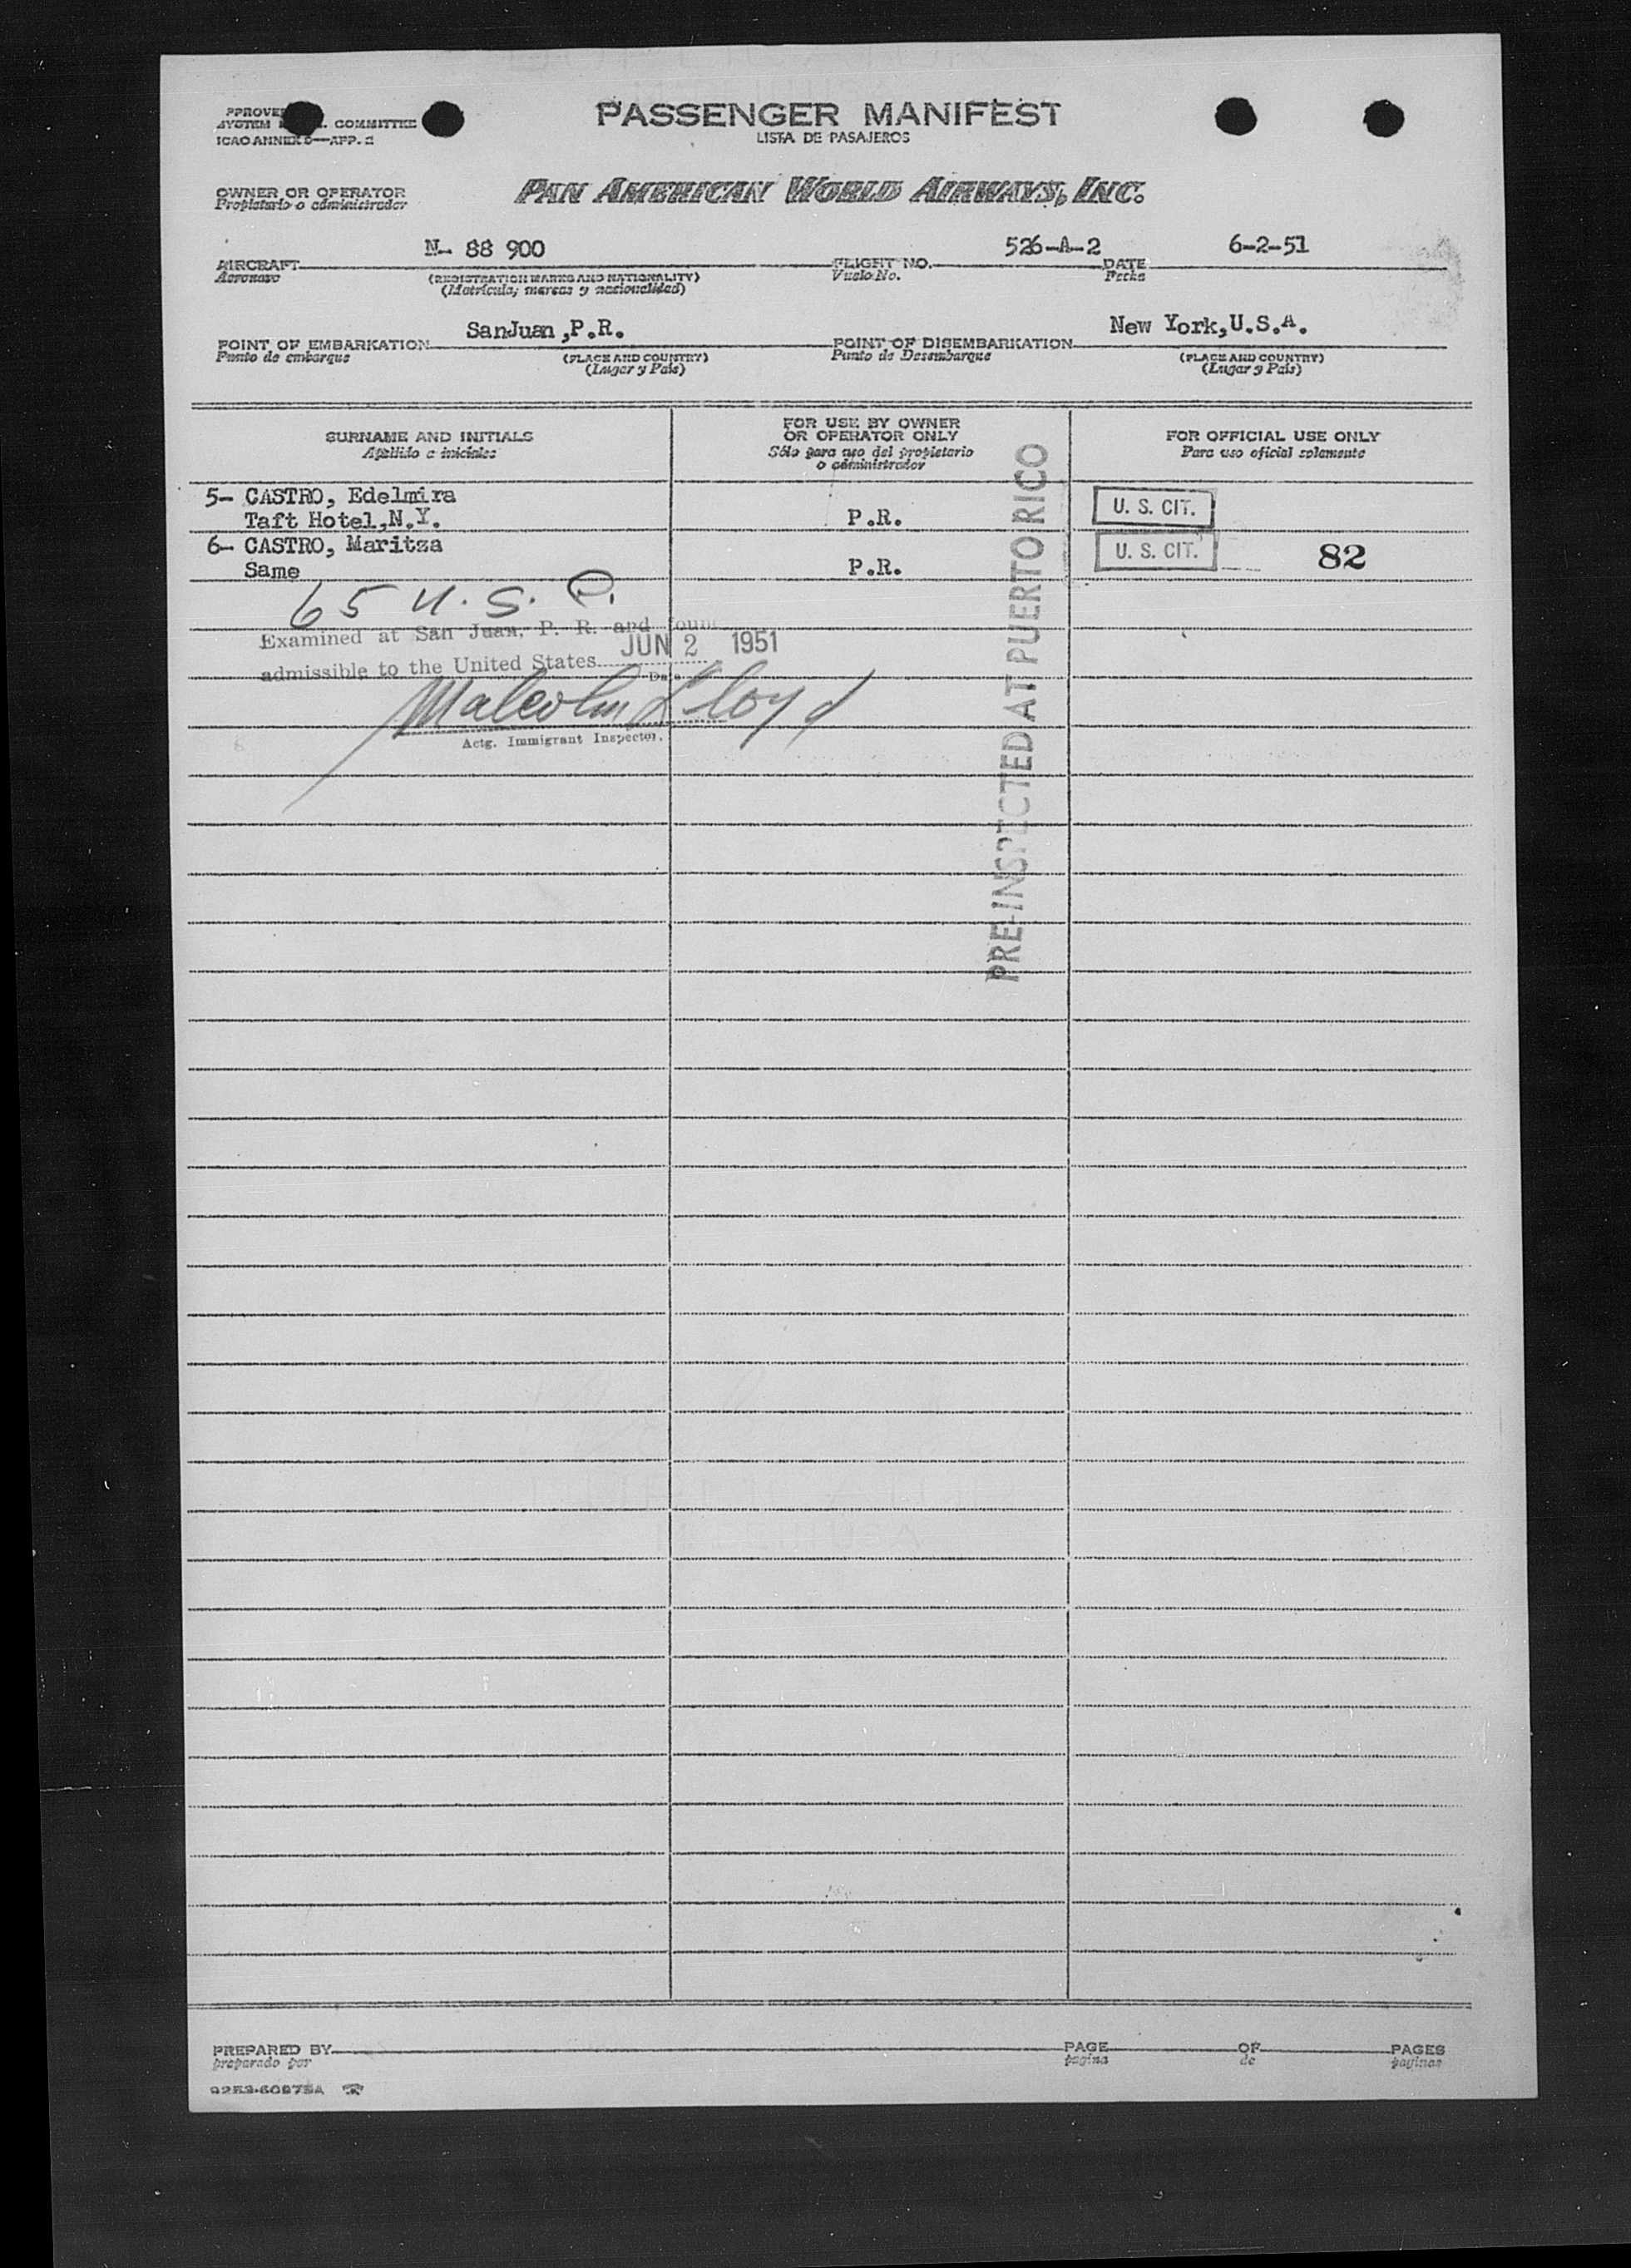 PASSENGER MANIFEST
LISTA DE PASAJEROS
COMMITTEE
ICAO ANNEX 9—APP. 2
OWNER OR OPERATOR
Propietario o administrador
PAN AMERICAN WORLD AIRWAYS, INC.
AIRCRAFT N- 88 900 FLIGHT NO. 526-A-2 DATE 6-2-51
Aeronave (REGISTRATION MARKS AND NATIONALITY) Vuelo No. Fecha
(Matrícula, marcas y nacionalidad)
POINT OF EMBARKATION SanJuan ,P.R. POINT OF DISEMBARKATION New York,U.S.A.
Punto de embarque (PLACE AND COUNTRY) Punto de Desembarque (PLACE AND COUNTRY)
(Lugar y País) (Lugar y País)
SURNAME AND INITIALS
Apellido e iniciales
FOR USE BY OWNER
OR OPERATOR ONLY
Sólo para uso del propietario
o administrador
FOR OFFICIAL USE ONLY
Para uso oficial solamente
5- CASTRO, Edelmira
Taft Hotel,N.Y. P.R. U. S. CIT.
6- CASTRO, Maritza
Same P.R. U. S. CIT. 82
65 U.S.C.
Examined at San Juan, P. R. and found
admissible to the United States JUN 2 1951
Date
Malcolm Lloyd
Actg. Immigrant Inspector.
PRE-INSPECTED AT PUERTO RICO
PREPARED BY PAGE OF PAGES
preparado por página de páginas